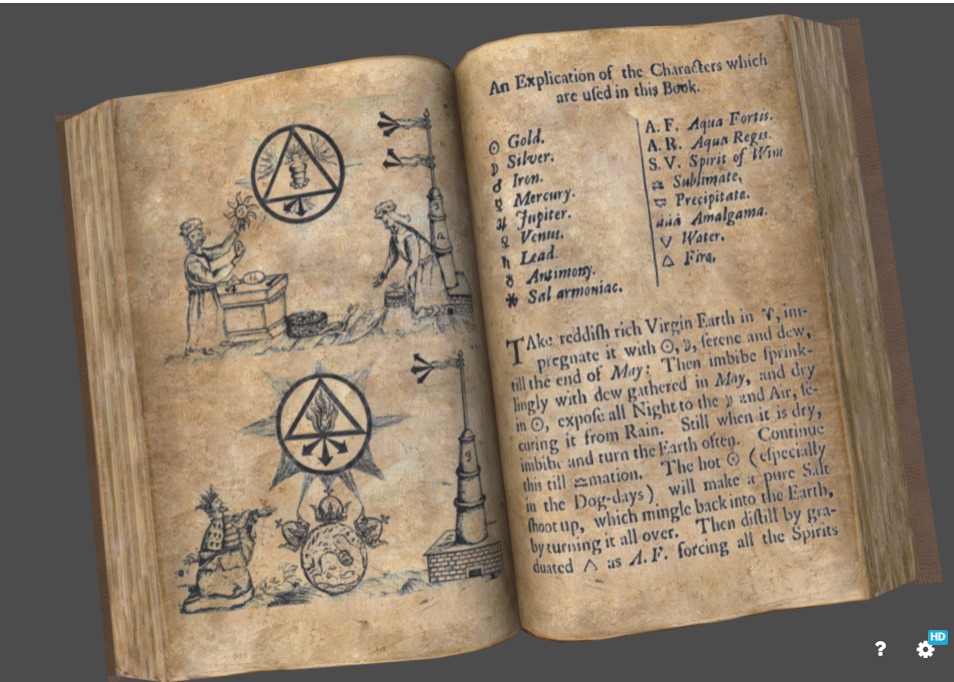 An Explication of the Characters which
are uſed in this Book.
☉ Gold.
☽ Silver.
♂ Iron.
☿ Mercury.
♃ Jupiter.
♀ Venus.
♄ Lead.
♁ Antimony.
✱ Sal armoniac.
A. F. Aqua Fortis.
A. R. Aqua Regis.
S. V. Spirit of Wine
♎ Sublimate,
Precipitate.
āāā Amalgama.
▽ Water.
△ Fire,
TAke reddiſh rich Virgin Earth in ♈, im-
pregnate it with ☉, ☽, ſerene and dew,
till the end of May: Then imbibe ſprink-
lingly with dew gathered in May, and dry
in ☉, expoſe all Night to the ☽ and Air, ſe-
curing it from Rain. Still when it is dry,
imbibe and turn the Earth often. Continue
this till ♎mation. The hot ☉ (eſpecially
in the Dog-days) will make a pure Salt
ſhoot up, which mingle back into the Earth,
by turning it all over. Then diſtill by gra-
duated △ as A. F. forcing all the Spirits
HD
?